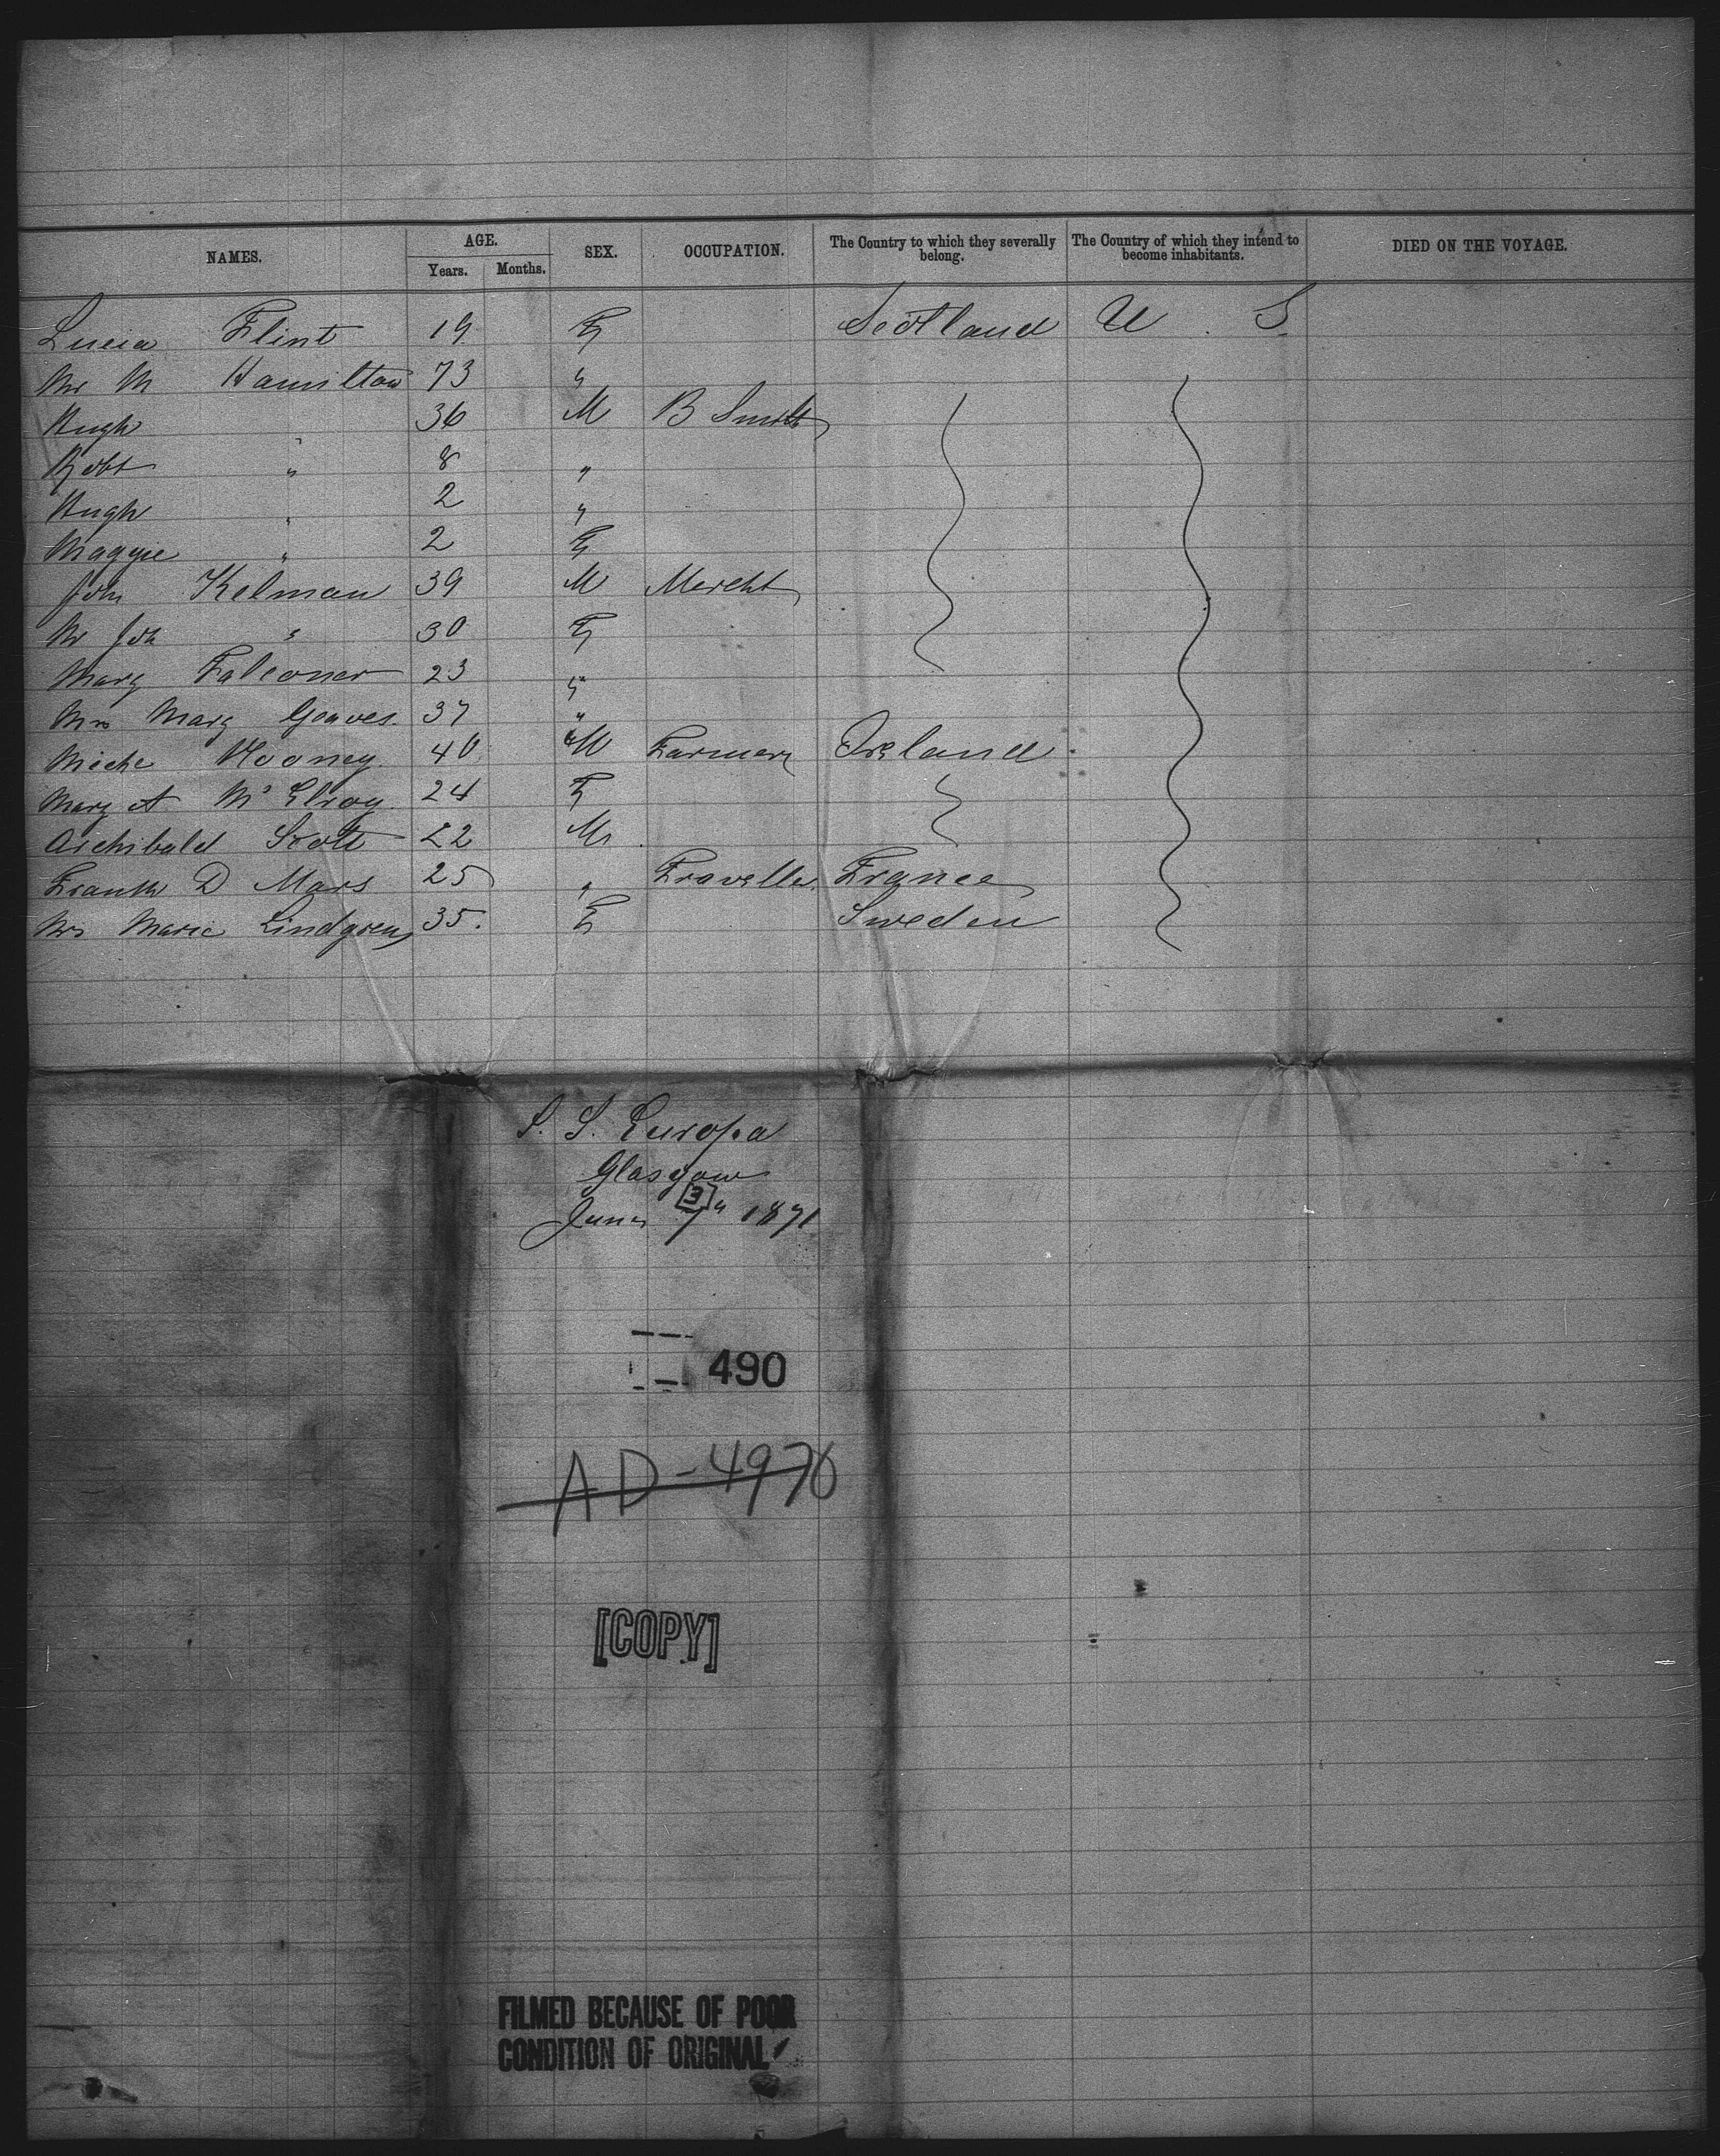 NAMES. AGE. SEX. OCCUPATION. The Country to which they severally belong. The Country of which they intend to become inhabitants. DIED ON THE VOYAGE.
Years. Months.
Lucia Flint 19 F Scotland U . S
Mr M Hamilton 73 "
Hugh 36 M B Smith
Robt " 8 "
Hugh " 2 "
Maggie " 2 F
John Kelman 39 M Mercht
Mr Joh " 30 F
Mary Falconer 23 "
Mrs Mary Graves 37 "
Miche Mooney 40 M Farmer Ireland
Mary A Mc Elroy 24 F
Archibald Scott 22 M
Frank D Mars 25 " Traveller France
Mrs Marie Lindgren 35. F Sweden
S. S. Europa
Glasgow
June 7" 1871
3
490
AD-4976
[COPY]
FILMED BECAUSE OF POOR
CONDITION OF ORIGINAL